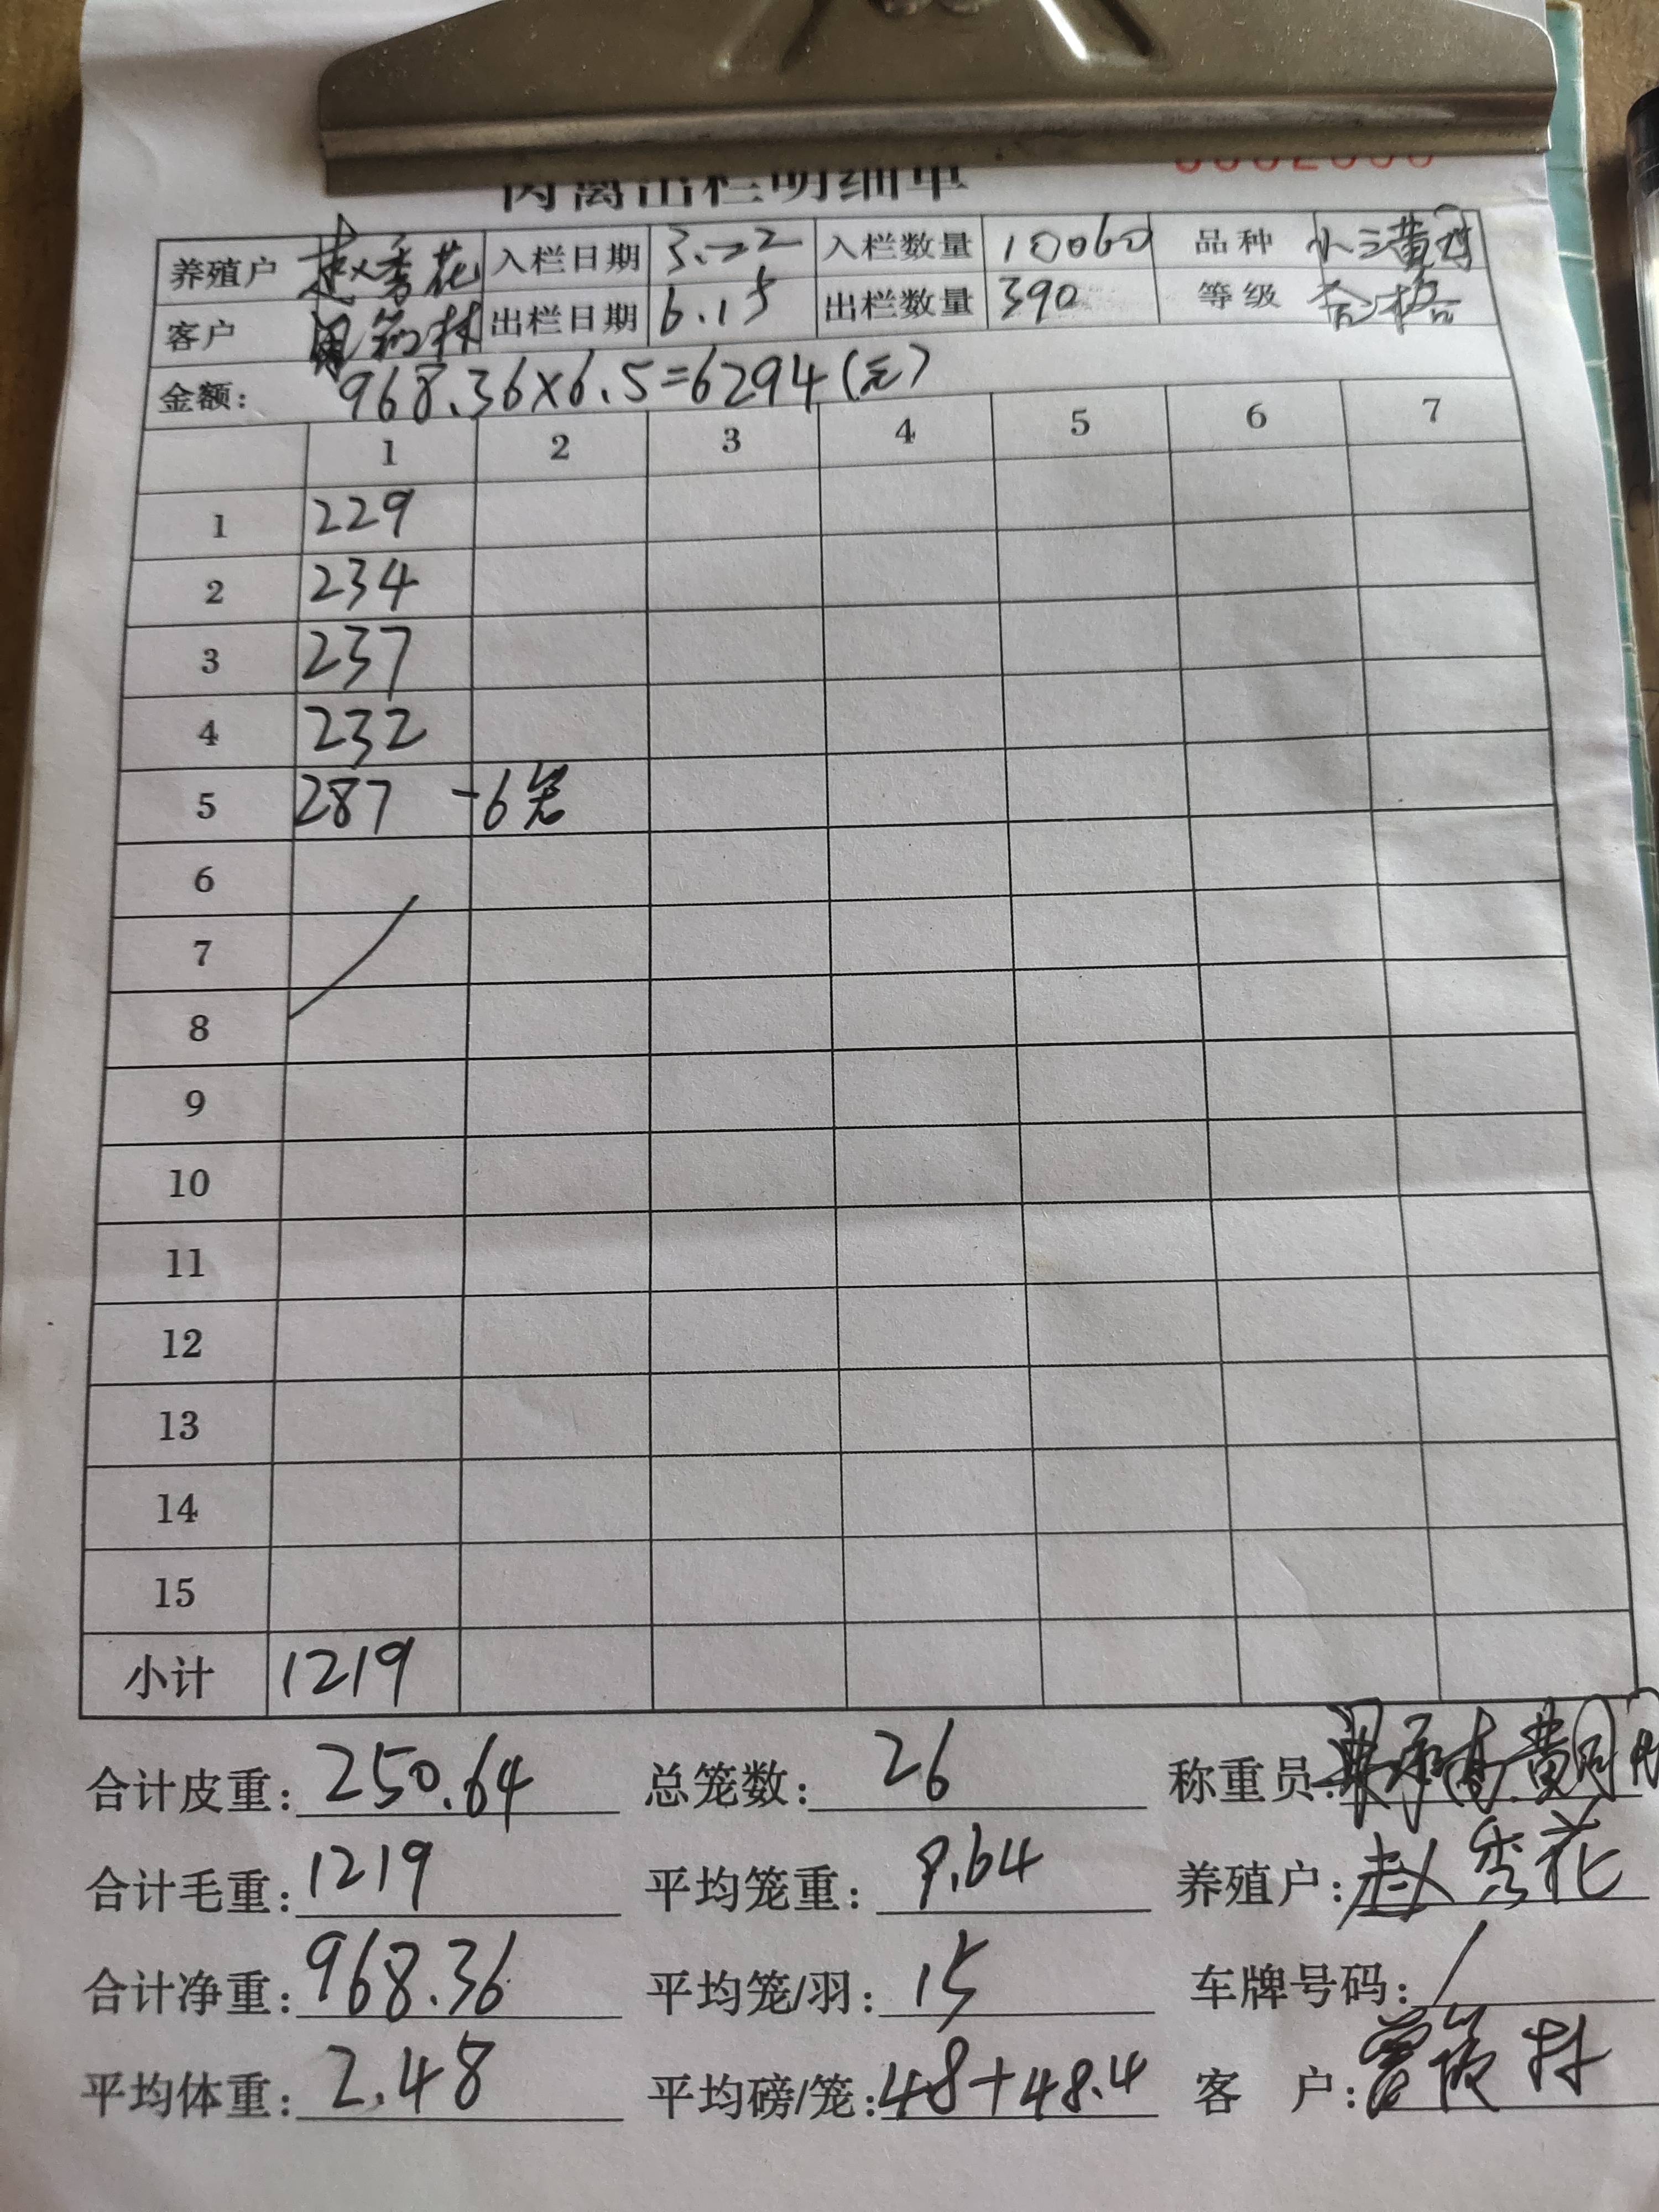 出栏明细单
养殖户 赵秀花 入栏日期 3.22 入栏数量 10060 品种 小三黄鸡
客户 出栏日期 6.15 出栏数量 390 等级 合格
金额: 968.36×6.5=6294(元)
1 2 3 4 5 6 7
1 229
2 234
3 237
4 232
5 287 -6笼
6
7
8
9
10
11
12
13
14
15
小计 1219
合计皮重: 250.64 总笼数: 26 称重员:
合计毛重: 1219 平均笼重: 9.64 养殖户: 赵秀花
合计净重: 968.36 平均笼/羽: 15 车牌号码: /
平均体重: 2.48 平均磅/笼: 48+48.4 客 户: